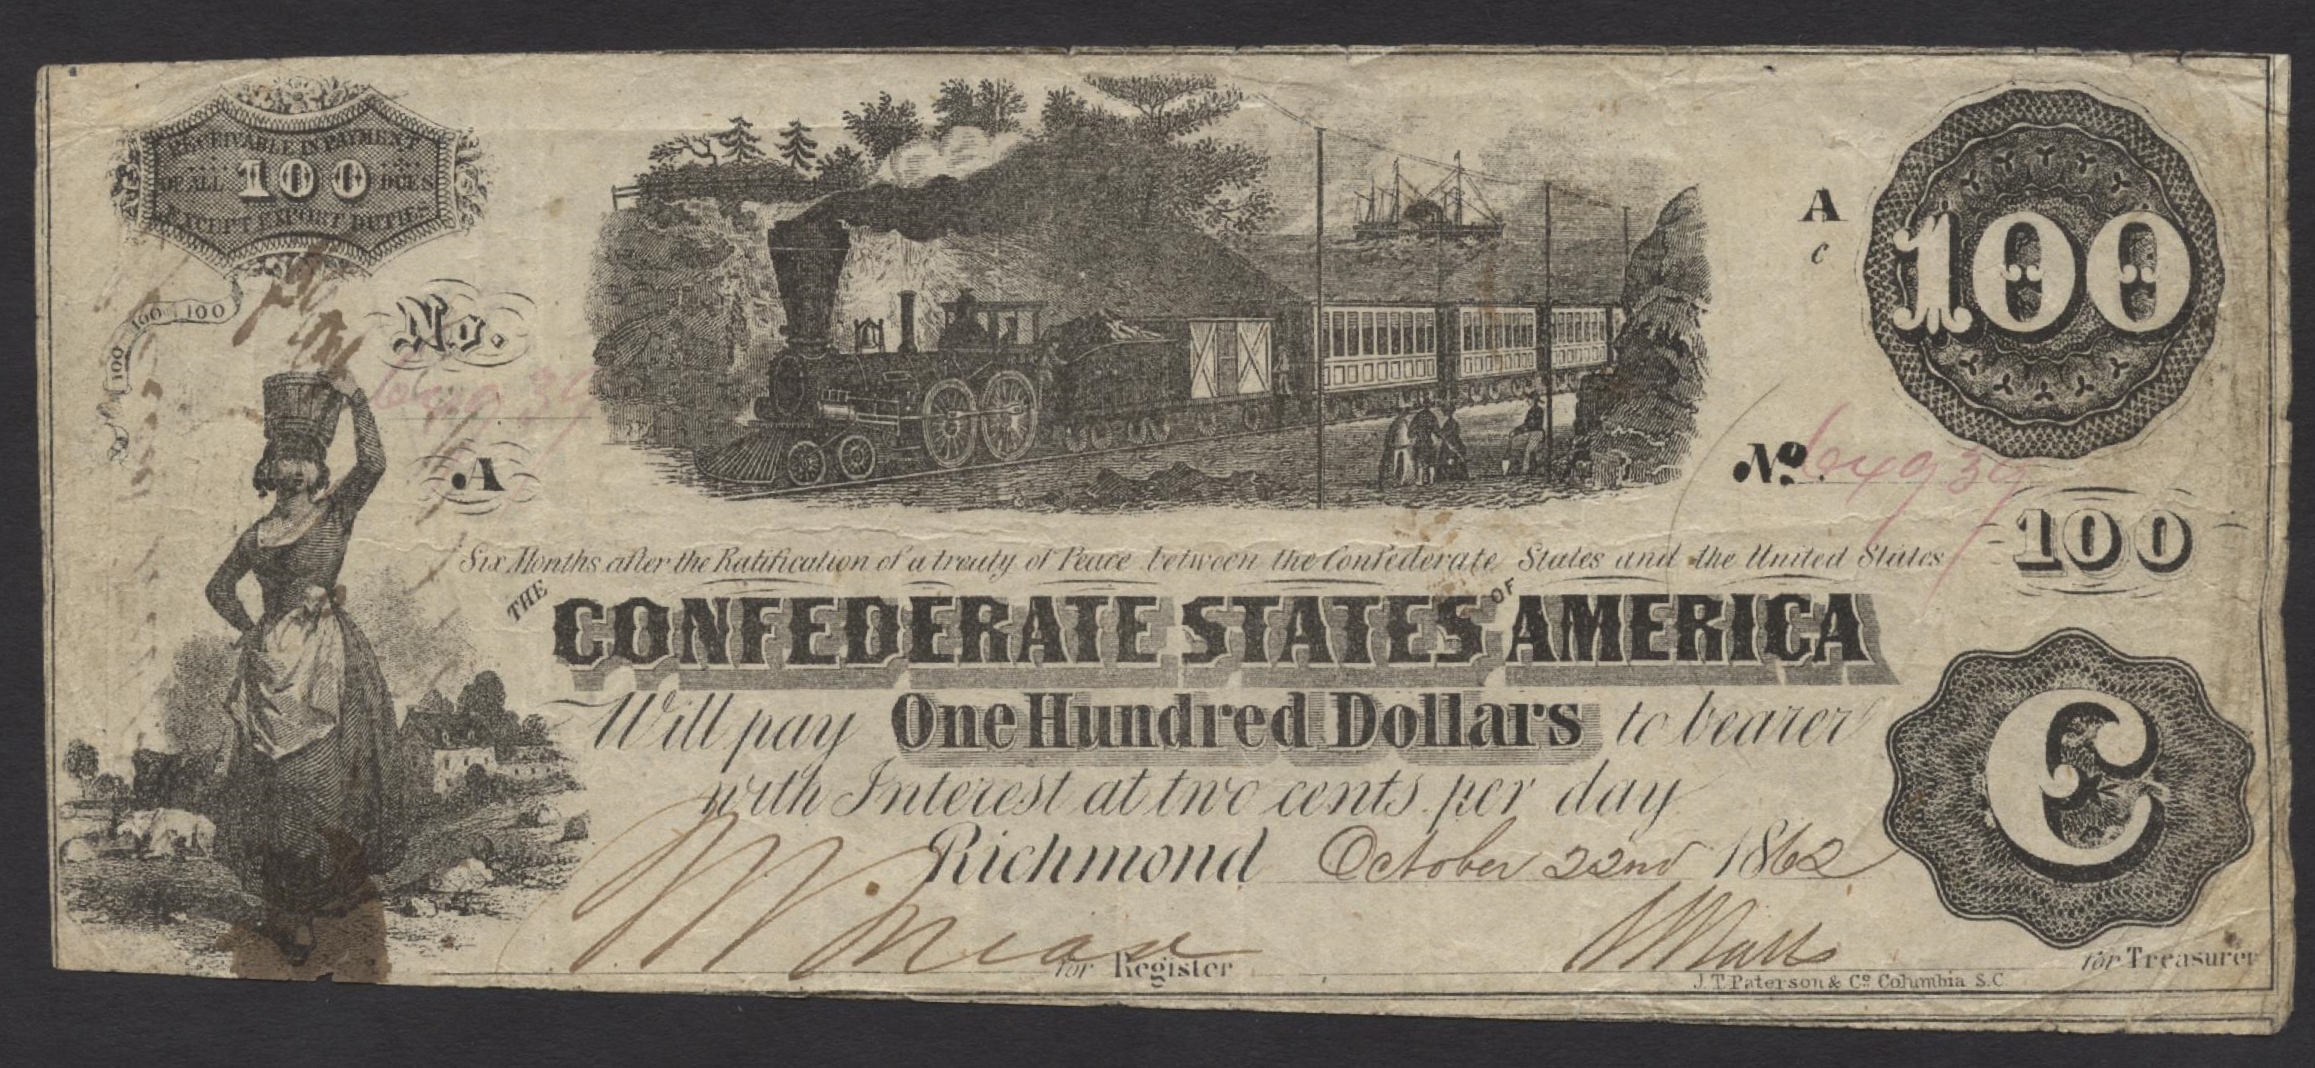 RECEIVABLE IN PAYMENT
OF ALL 100 DUES
EXCEPT EXPORT DUTIES
100 100 100
No.
A
A
c
100
No.
100
Six Months after the Ratification of a treaty of Peace between the Confederate States and the United States
THE CONFEDERATE STATES OF AMERICA
Will pay One Hundred Dollars to bearer
with Interest at two cents per day
Richmond October 22nd 1862
C
for Register
for Treasurer
J.T. Paterson & Co. Columbia S.C